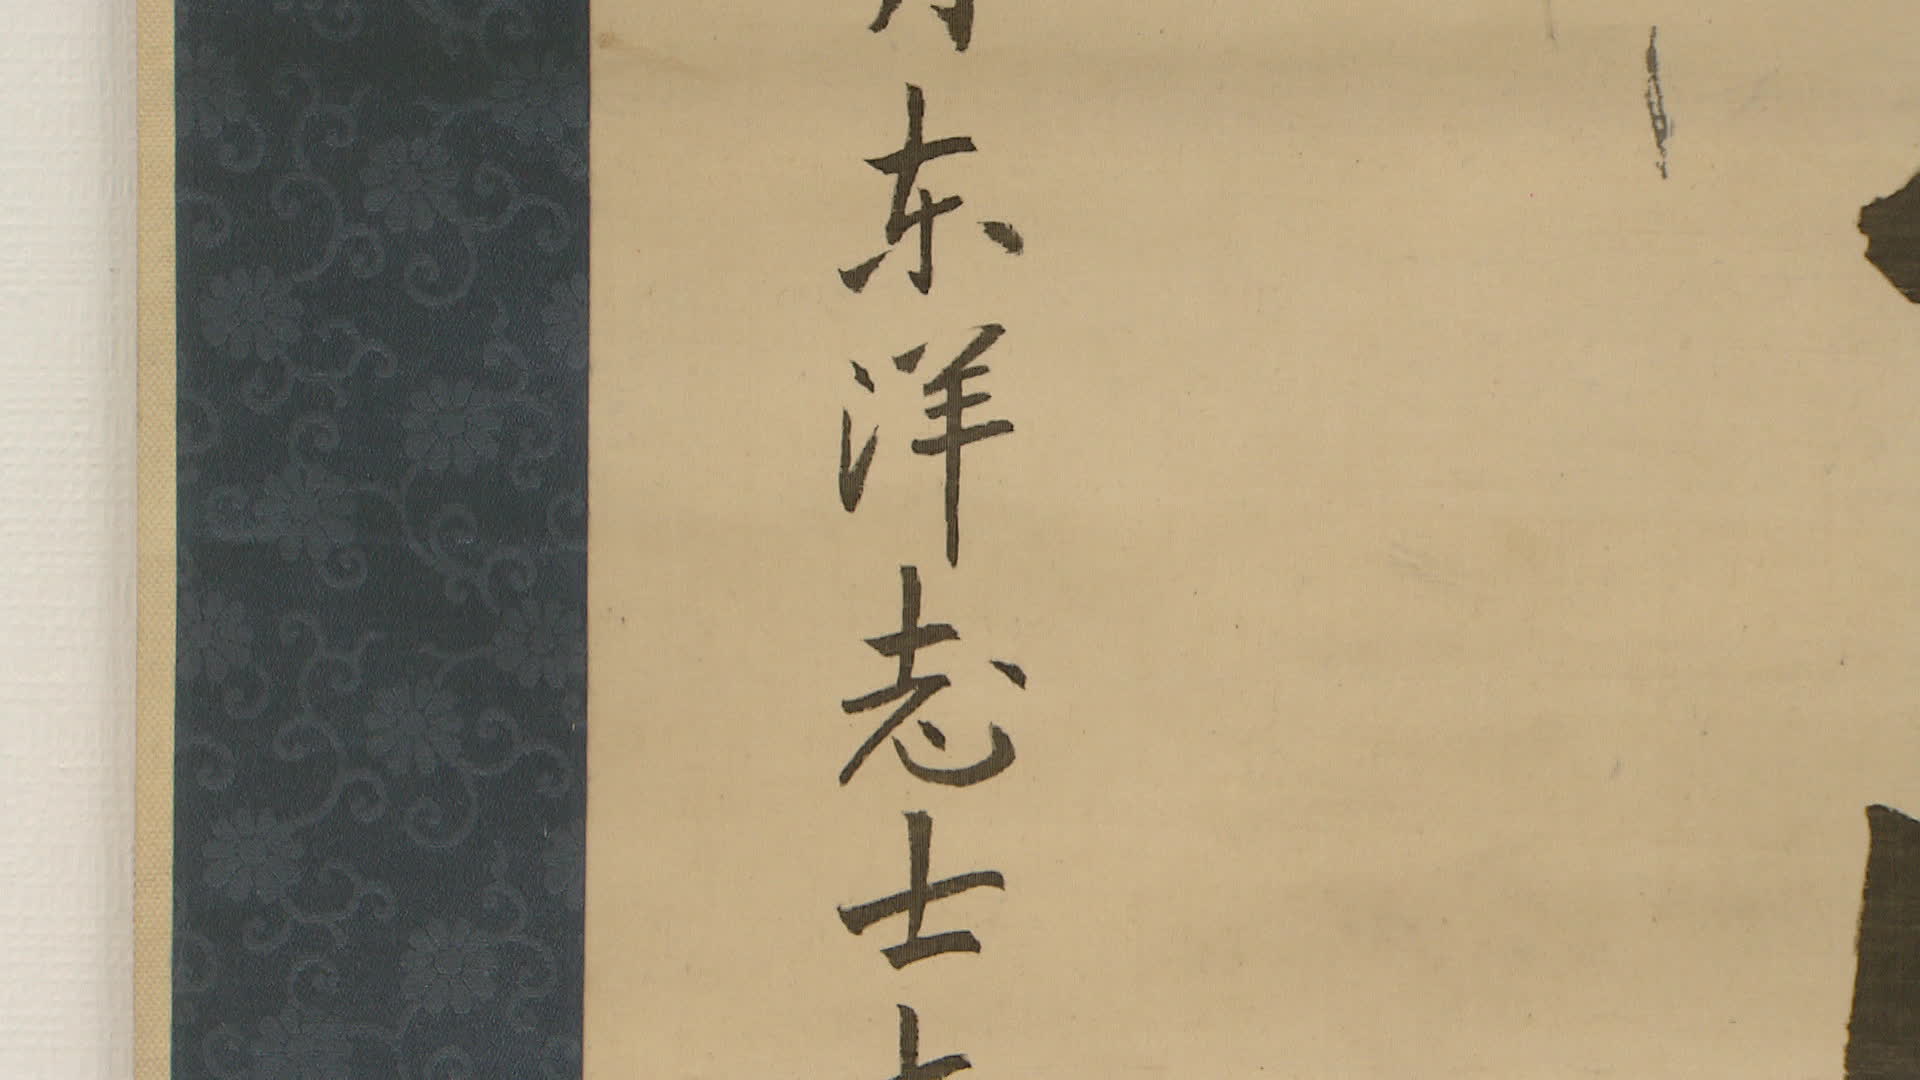 东洋志士